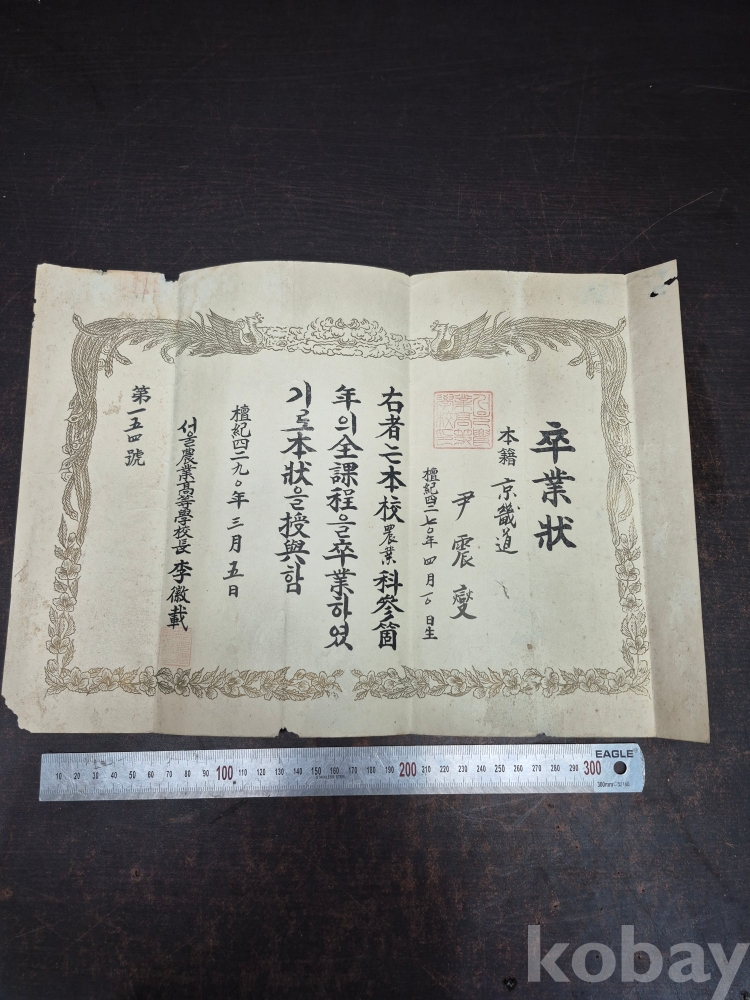 卒業狀
本籍 京畿道
尹震燮
檀紀四二七〇年 四月一〇日生
右者는本校農業科參箇
年의全課程을卒業하였
기로本狀을授與함
檀紀四二九〇年 三月 五日
서울農業高等學校長 李徽載
第一五四號
10 20 30 40 50 60 70 80 90 100 110 120 130 140 150 160 170 180 190 200 210 220 230 240 250 260 270 280 290 300
EAGLE
STAINLESS STEEL
kobay